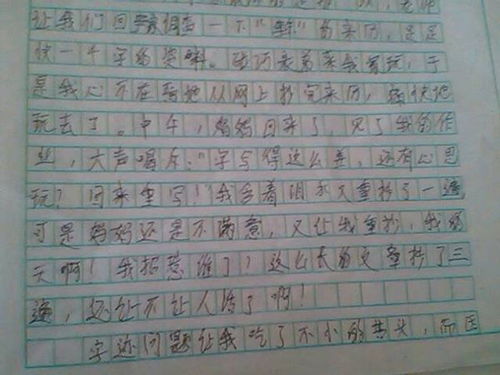 让我们回家调查一下“鲜”的来历，足足
快一千字的资料。碰巧表弟来我家玩，于
是我心不在焉地从网上抄完来历，飞快地
玩去了。中午，妈妈回来了，见了我的作
业，大声喝斥：“字写得这么差，还有心思
玩？回来重写！”我含着泪水又重抄了一遍，
可是妈妈还是不满意，又让我重抄，我的
天啊！我招惹谁了？这么长的文章抄了三
遍，还让不让人活了啊！
字迹问题让我吃了不小的苦头，而因